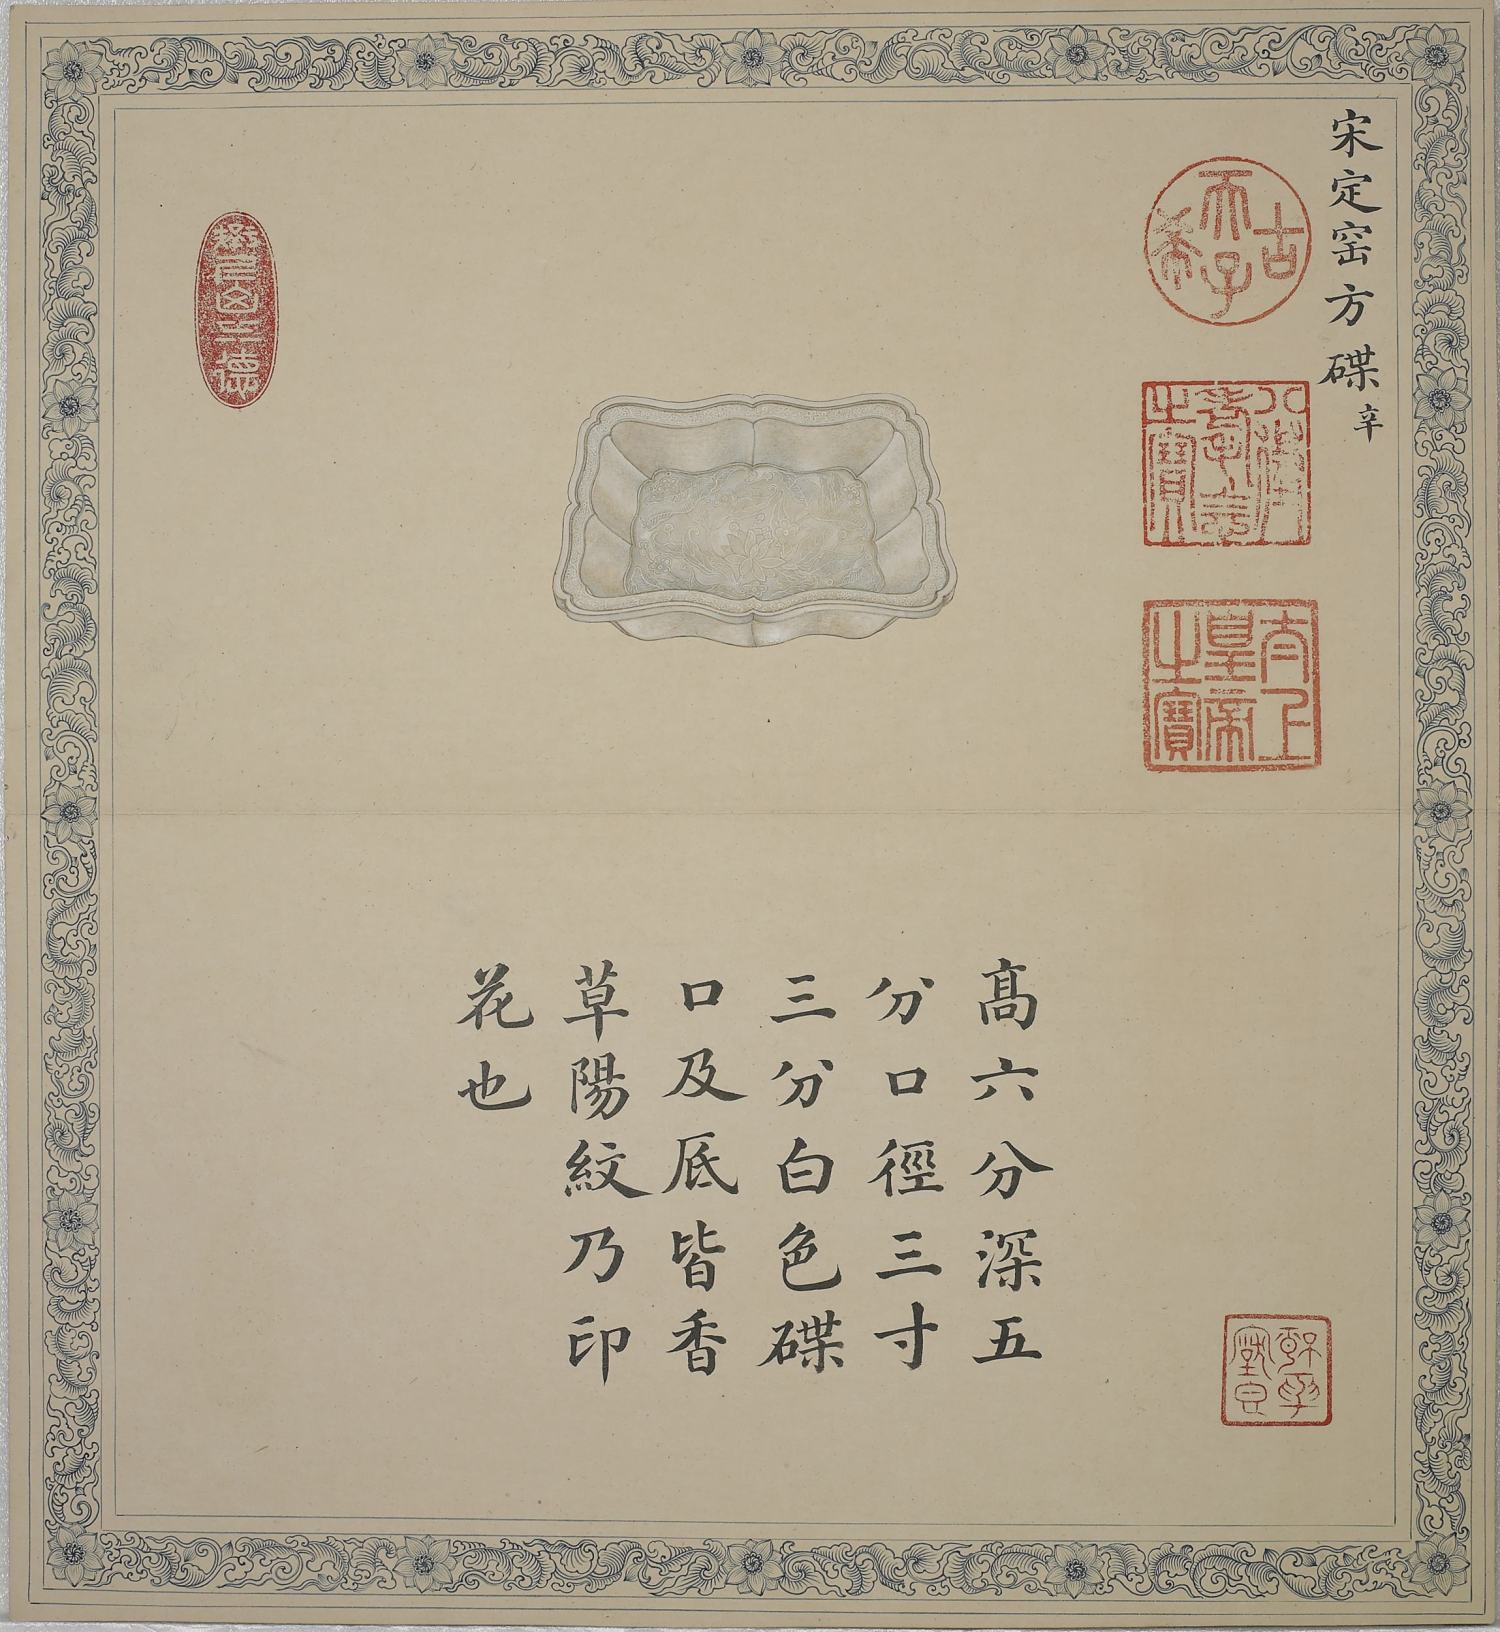 宋定窑方碟 辛
古希天子
八徵耄念之寶
太上皇帝之寶
高六分深五
分口徑三寸
三分白色碟
口及底皆香
草陽紋乃印
花也